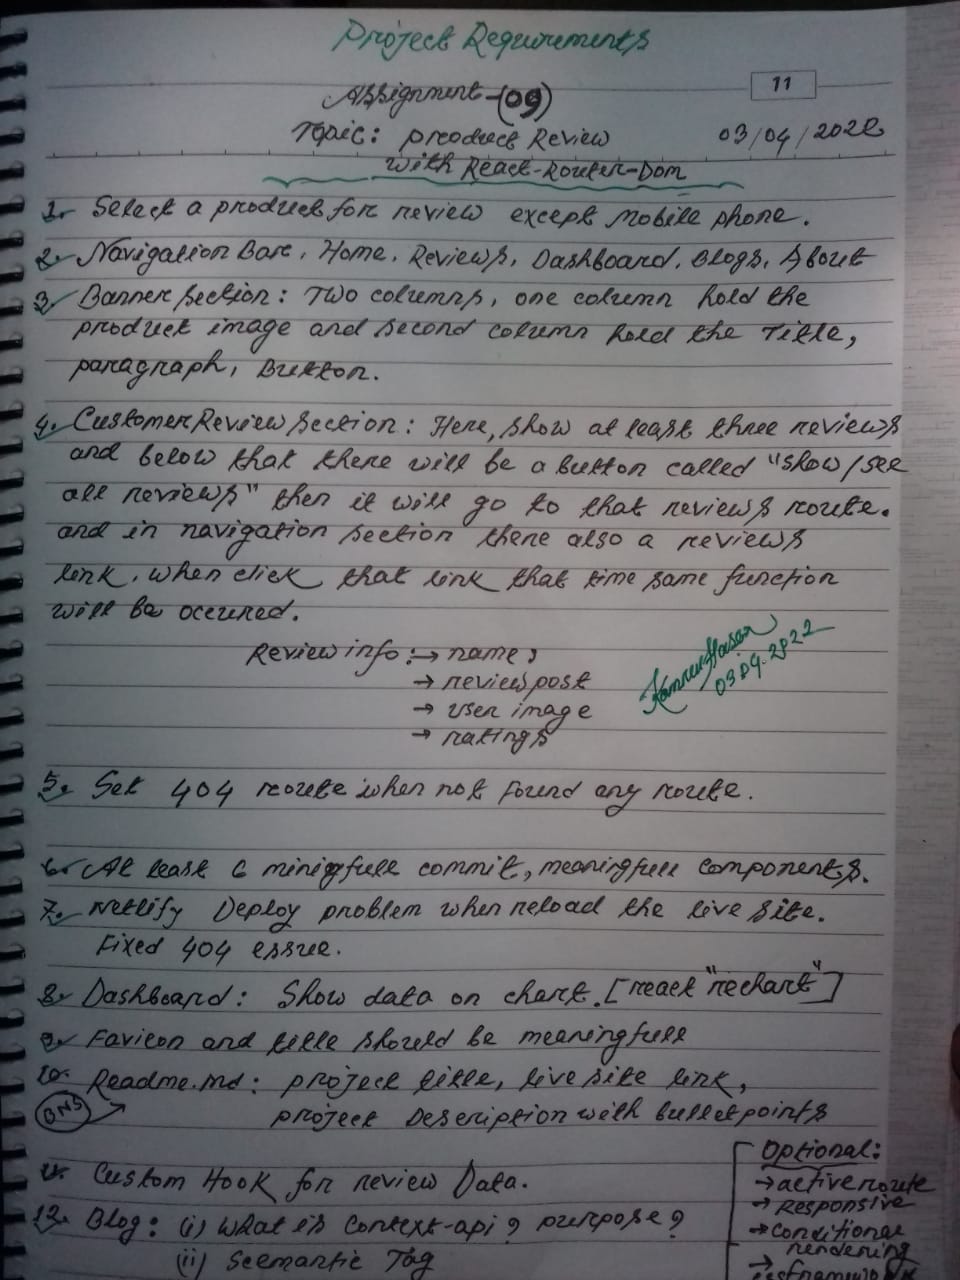 Project Requirements
11
Assignment-(09)
Topic: product Review
03/04/2022
with React-Router-Dom
1. Select a product for review except Mobile phone.
2. Navigation Bar, Home, Reviews, Dashboard, Blogs, About
3. Banner section: Two columns, one column hold the
product image and second column hold the Title,
paragraph, Button.
4. Customer Review section: Here, show at least three reviews
and below that there will be a button called "show/see
all reviews" then it will go to that reviews route.
and in navigation section there also a reviews
link, when click that link that time same function
will be occured.
Review info: → name;
→ review post
→ user image
→ ratings
03.04.2022
5. Set 404 route when not found any route.
6. At least 6 miningfull commit, meaningfull components.
7. Netlify Deploy problem when reload the live site.
Fixed 404 essue.
8. Dashboard: Show data on chart. [react "rechart"]
9. Favicon and title should be meaningfull
10. Readme.md: project title, live site link,
BNS
project Description with bullet points
11. Custom Hook for review Data.
12. Blog: (i) what is Context-api? purpose?
(ii) Seemantic Tag
Optional:
→ active route
→ Responsive
→ conditional
rendering
→